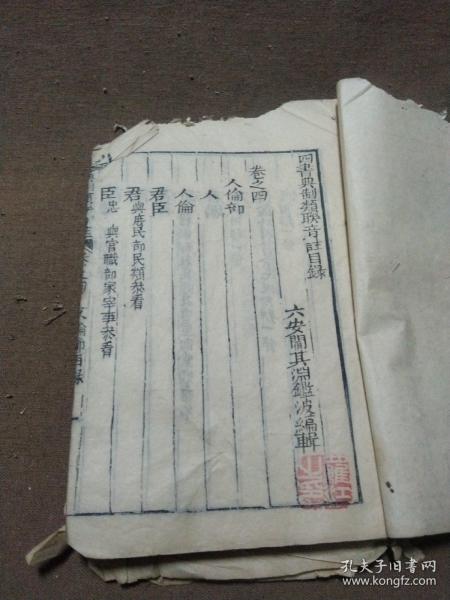 四書典制類聯音註目錄
六安閻其淵鑑波編輯
卷之四
人倫部
人
人倫
君臣
君與庶民部民類叅看
臣忠 與官職部家宰事叅看
人倫部目錄
孔夫子旧书网
www.kongfz.com